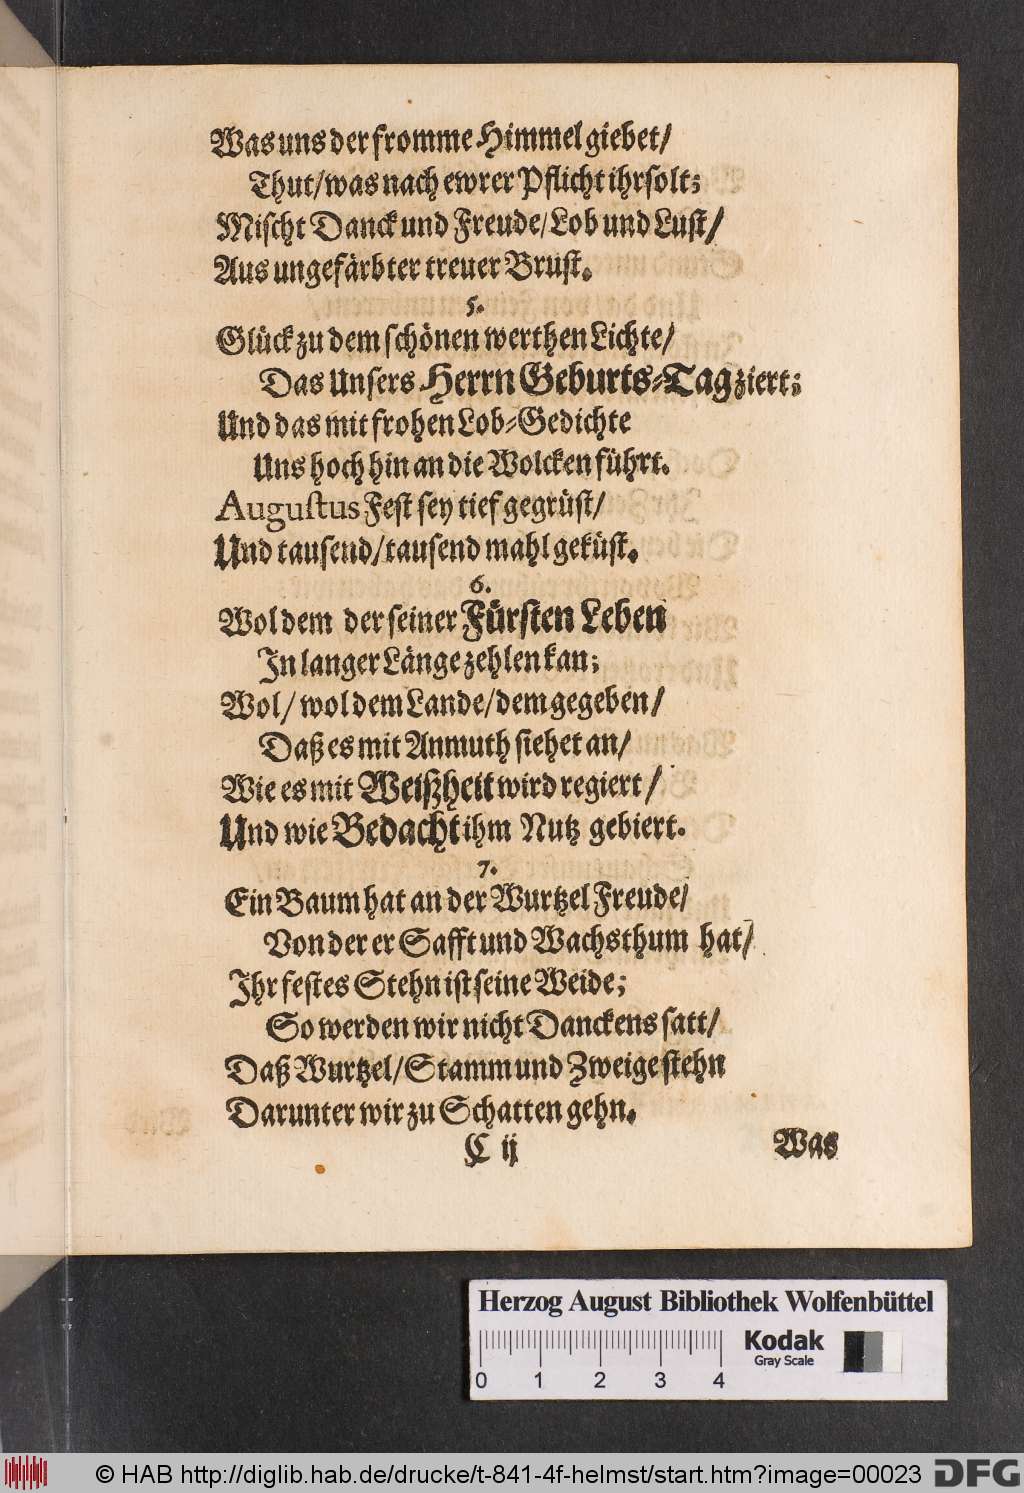 Was uns der fromme Himmel giebet/
Thut/was nach ewrer Pflicht ihr solt;
Mischt Danck und Freude/Lob und Lust/
Aus ungefärbter treuer Brust.
5.
Glück zu dem schönen werthen Lichte/
Das Unsers Herrn Geburts-Tag ziert;
Und das mit frohen Lob-Gedichte
Uns hoch hin an die Wolcken führt.
Augustus Fest sey tief gegrüst/
Und tausend/tausend mahl geküst.
6.
Wol dem der seiner Fürsten Leben
In langer Länge zehlen kan;
Wol/ wol dem Lande/dem gegeben/
Daß es mit Anmuth siehet an/
Wie es mit Weißheit wird regiert/
Und wie Bedacht ihm Nutz gebiert.
7.
Ein Baum hat an der Wurtzel Freude/
Von der er Safft und Wachsthum hat/
Ihr festes Stehn ist seine Weide;
So werden wir nicht Danckens satt/
Daß Wurtzel/Stamm und Zweige stehn
Darunter wir zu Schatten gehn.
C ij
Was
Herzog August Bibliothek Wolfenbüttel
Kodak
Gray Scale
0 1 2 3 4
© HAB http://diglib.hab.de/drucke/t-841-4f-helmst/start.htm?image=00023
DFG